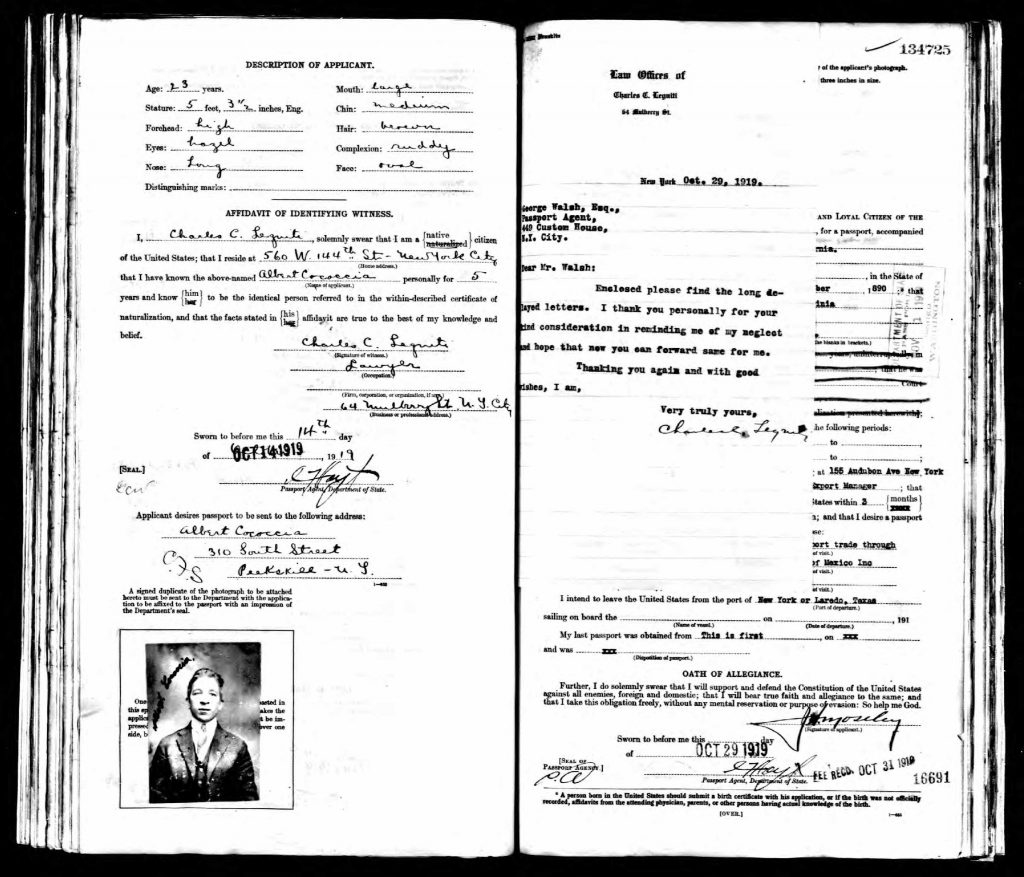 DESCRIPTION OF APPLICANT.
Age: 23 years.
Mouth: large
Stature: 5 feet, 3 1/2 inches, Eng.
Chin: medium
Forehead: high
Hair: brown
Eyes: hazel
Complexion: ruddy
Nose: Long
Face: oval
Distinguishing marks:
AFFIDAVIT OF IDENTIFYING WITNESS.
I, Charles C. Legniti, solemnly swear that I am a {native naturalized} citizen
of the United States; that I reside at 560 W. 144th St - New York City
(Home address.)
that I have known the above-named Albert Cococcia personally for 5
(Name of applicant.)
years and know {him her} to be the identical person referred to in the within-described certificate of
naturalization, and that the facts stated in {his her} affidavit are true to the best of my knowledge and
belief.
Charles C. Legniti
(Signature of witness.)
Lawyer
(Occupation.)
(Firm, corporation, or organization, if any.)
64 Mulberry St. N.Y. City
(Business or professional address.)
Sworn to before me this 14th day
of OCT 14 1919, 1919
[SEAL.]
Passport Agent, Department of State.
Applicant desires passport to be sent to the following address:
Albert Cococcia
310 South Street
Peekskill - N.Y.
A signed duplicate of the photograph to be attached
hereto must be sent to the Department with the applica-
tion to be affixed to the passport with an impression of
the Department's seal.
One
this sp
applic
presse
side, b
asted in
akes the
t be im-
over one
134725
r of the applicant's photograph.
three inches in size.
Law Offices of
Charles C. Legniti
64 Mulberry St.
New York Oct. 29, 1919.
George Walsh, Esq.,
Passport Agent,
449 Custom House,
N.Y. City.
Dear Mr. Walsh:
Enclosed please find the long de-
layed letters. I thank you personally for your
kind consideration in reminding me of my neglect
and hope that now you can forward same for me.
Thanking you again and with good
wishes, I am,
Very truly yours,
Charles C. Legniti
AND LOYAL CITIZEN OF THE
, for a passport, accompanied
, in the State of
ber , 890 * that
inia
he blanks in brackets.)
years, uninterruptedly, in
; that he was
Court
lication presented herewith];
he following periods:
to ;
to ;
; at 155 Audubon Ave New York
Export Manager ; that
States within 3 {months xxxxx
n; and that I desire a passport
se:
port trade through
of visit.)
of Mexico Inc
of visit.)
of visit.)
I intend to leave the United States from the port of New York or Laredo, Texas
(Port of departure.)
sailing on board the on , 191
(Name of vessel.) (Date of departure.)
My last passport was obtained from This is first , on xxx
and was xxx
(Disposition of passport.)
OATH OF ALLEGIANCE.
Further, I do solemnly swear that I will support and defend the Constitution of the United States
against all enemies, foreign and domestic; that I will bear true faith and allegiance to the same; and
that I take this obligation freely, without any mental reservation or purpose of evasion: So help me God.
Moseley
(Signature of applicant.)
Sworn to before me this day
of OCT 29 1919
[SEAL OF
PASSPORT AGENCY.]
Passport Agent, Department of State.
FEE RECD. OCT 31 1919
16691
* A person born in the United States should submit a birth certificate with his application, or if the birth was not officially
recorded, affidavits from the attending physician, parents, or other persons having actual knowledge of the birth.
[OVER.]